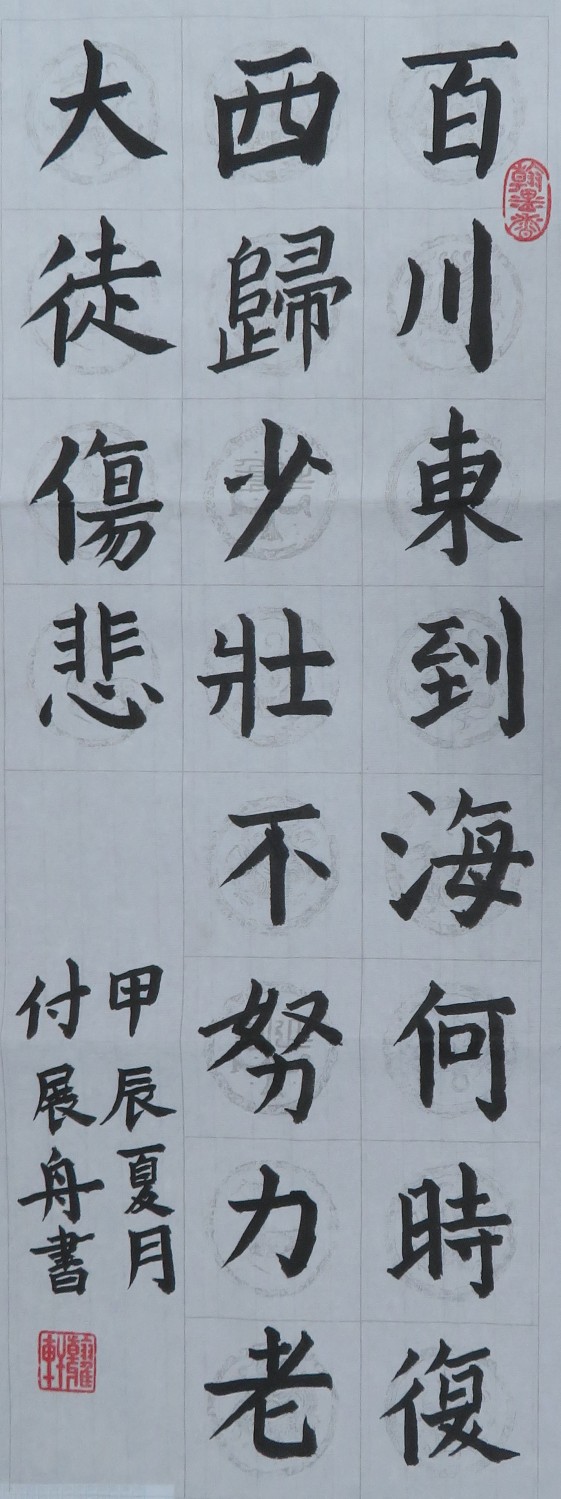 百川東到海何時復
西歸少壯不努力老
大徒傷悲
甲辰夏月
付展舟書
翰墨香